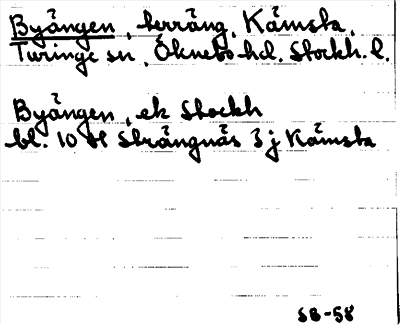 Byängen, terräng, Kämsta,
Turinge sn, Öknebo hd, Stockh. l.
Byängen, ek Stockh
bl. 10 H Strängnäs 3 j Kämsta
SB-58